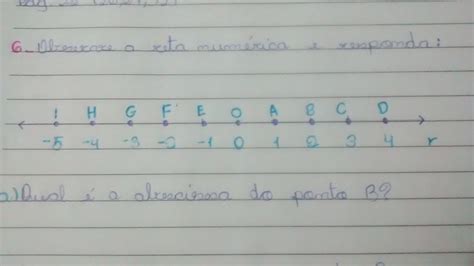 6_ Observe a reta numérica e responda:
I H G F E O A B C D
-5 -4 -3 -2 -1 0 1 2 3 4 r
a) Qual é a abscissa do ponto B?